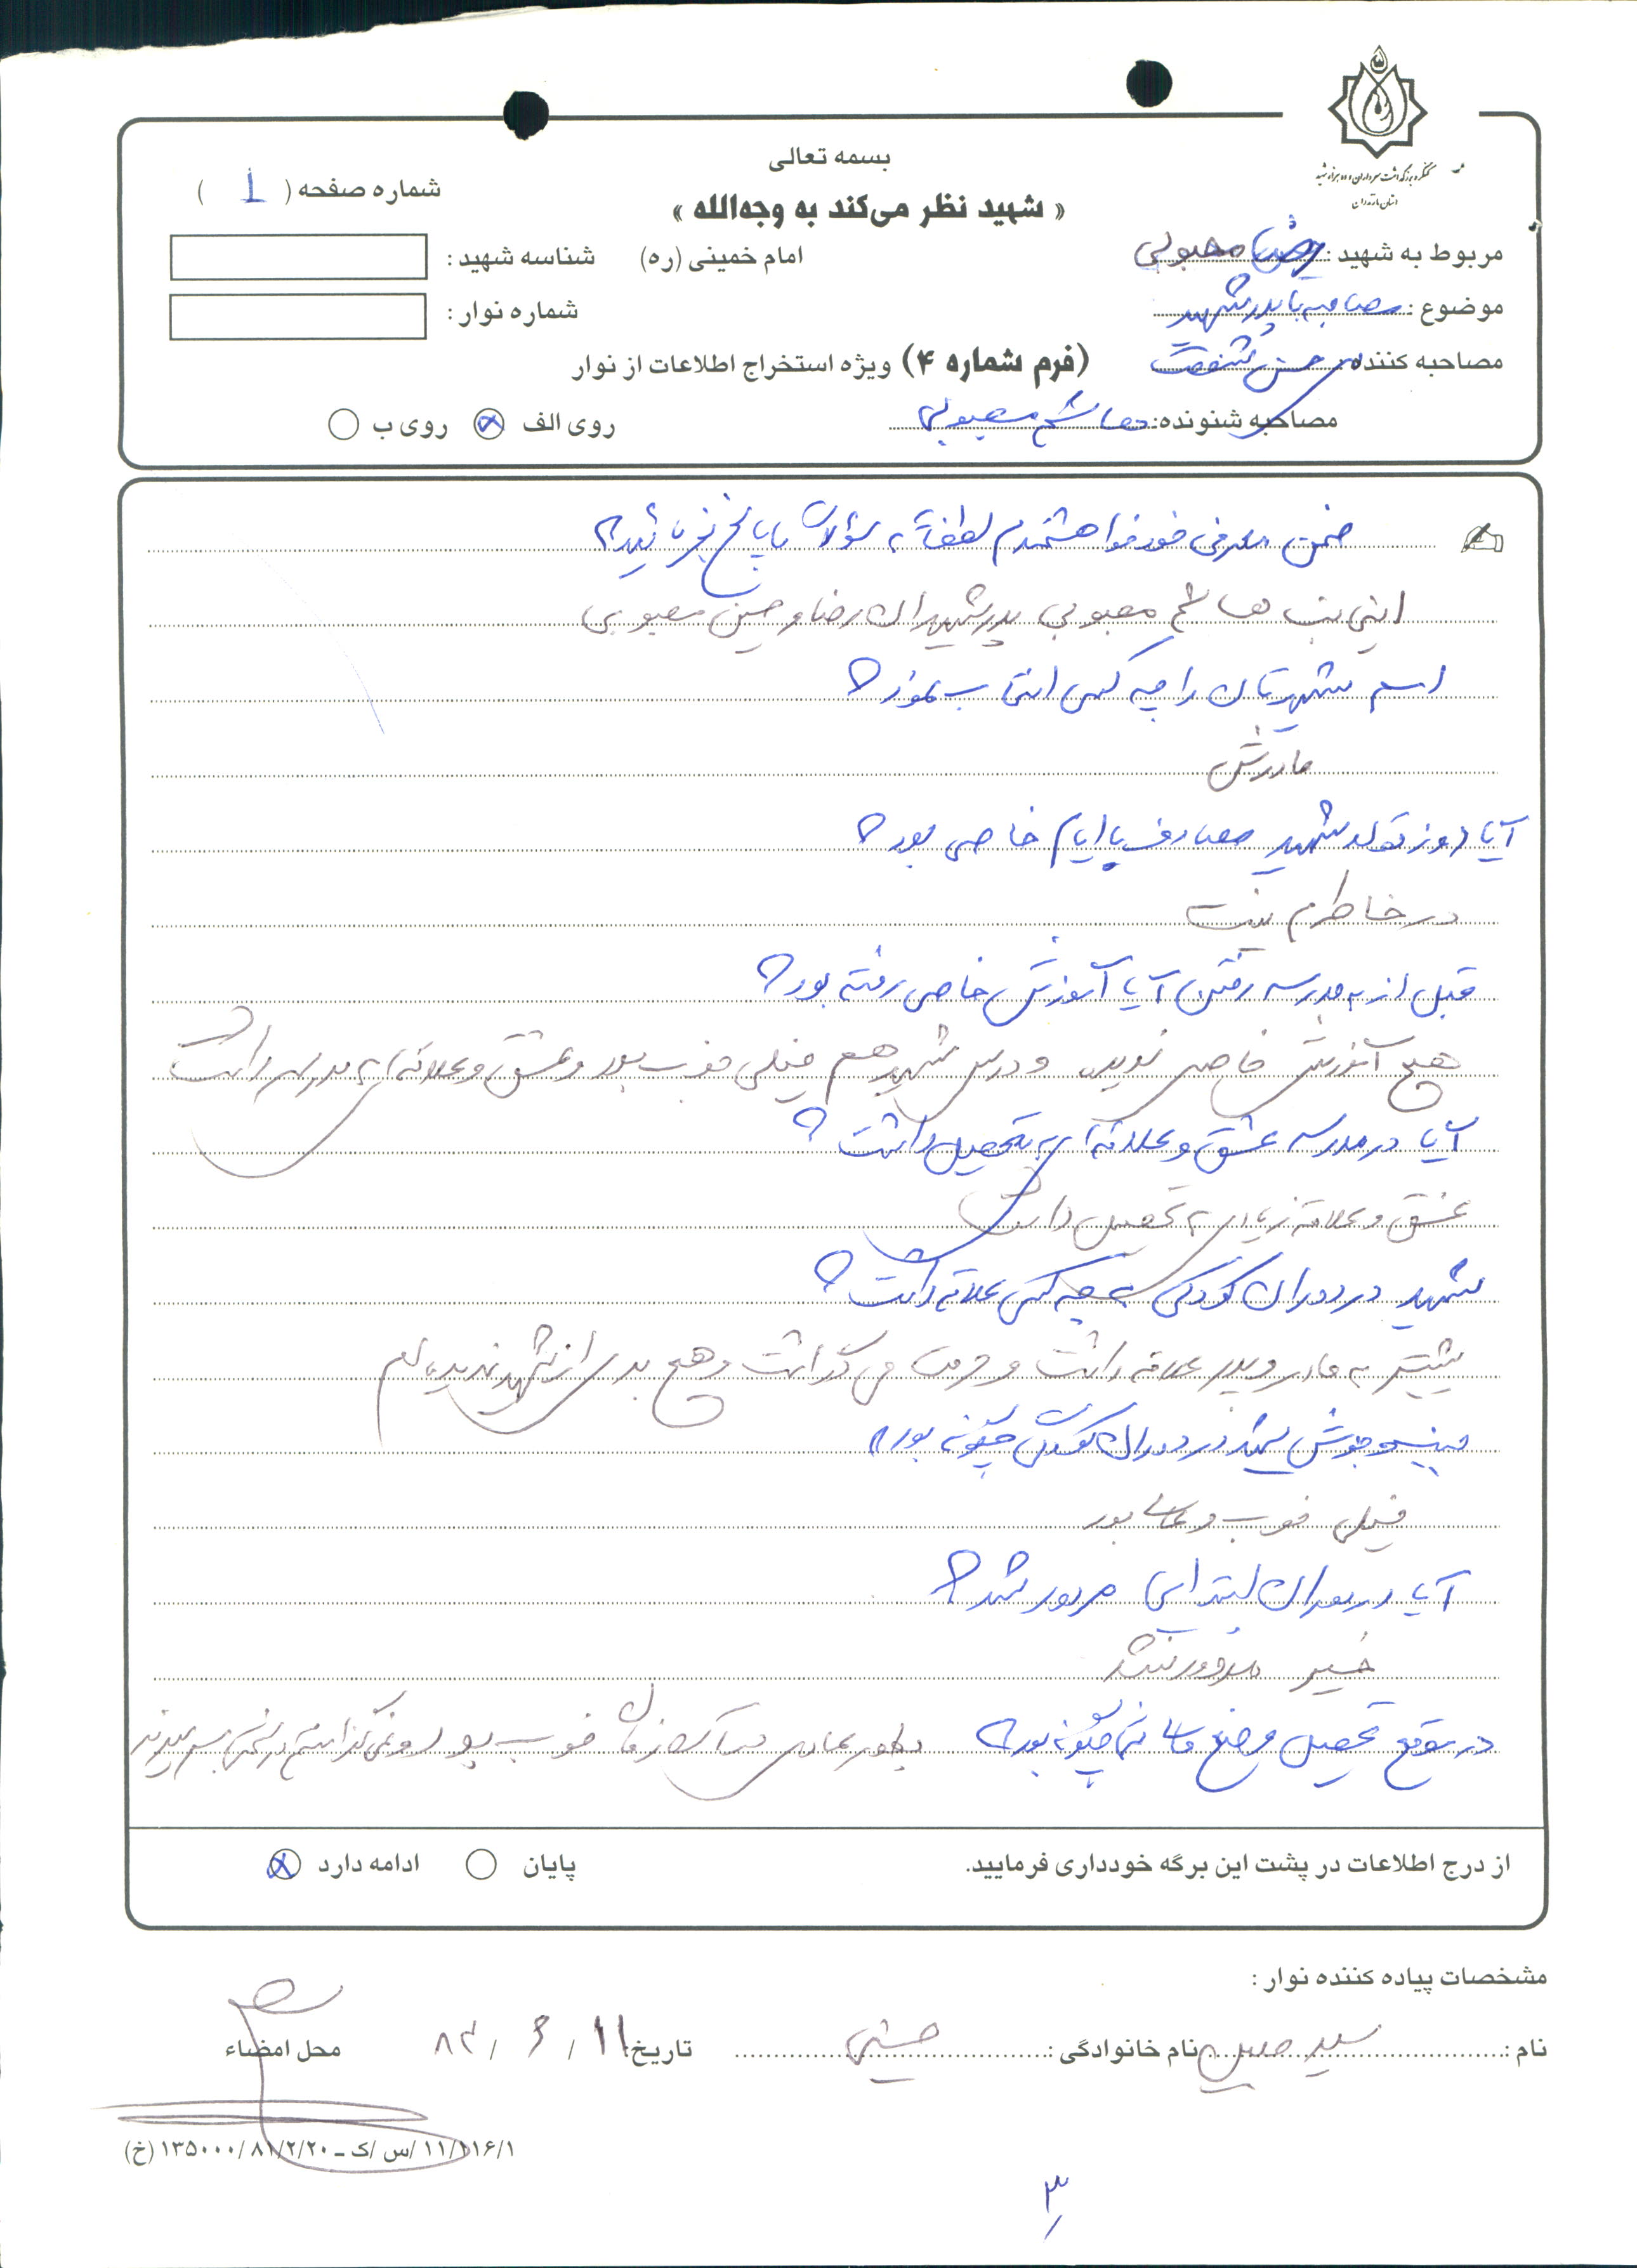 بسمه تعالی
« شهید نظر می‌کند به وجه‌الله »
امام خمینی (ره)
شماره صفحه ( 1 )
شناسه شهید :
شماره نوار :
کنگره بزرگداشت سرداران و ده هزار شهید
استان مازندران
مربوط به شهید : رضا محبوبی
موضوع : مصاحبه با پدر شهید
مصاحبه کننده : حسن شفقت
مصاحبه شنونده : هاشم محبوبی
(فرم شماره ۴) ویژه استخراج اطلاعات از نوار
روی الف روی ب
ضمن معرفی خود خواهشمندم لطفاً به سؤالات ما پاسخ بفرمائید؟
اینجانب هاشم محبوبی پدر شهیدان رضا و حسین محبوبی
اسم شهیدتان را چه کسی انتخاب نمود؟
مادرش
آیا روز تولد شهید مصادف با ایام خاصی بود؟
در خاطرم نیست
قبل از به مدرسه رفتن آیا آموزش خاصی رفته بود؟
هیچ آموزش خاصی ندید و درس شهید هم خیلی خوب بود و عشق و علاقه ای به مدرسه داشت
آیا در مدرسه عشق و علاقه ای به تحصیل داشت؟
عشق و علاقه زیادی به تحصیل داشت
شهید در دوران کودکی به چه کسی علاقه داشت؟
بیشتر به مادر و پدر علاقه داشت و حرمت می گذاشت و هیچ بدی از شهید ندیده ام
جنب و جوش شهید در دوران کودکی چگونه بود؟
خیلی خوب و عالی بود
آیا در دوران ابتدایی مردود شد؟
خیر مردود نشد
در موقع تحصیل وضع مالی شما چگونه بود؟ بطور عادی در آن زمان خوب بود و نمی گذاشتم در سختی بسر ببرند
از درج اطلاعات در پشت این برگه خودداری فرمایید.
پایان ادامه دارد
مشخصات پیاده کننده نوار :
نام : سید نام خانوادگی : حسینی تاریخ ۱۱ / ۶ / ۸۲ محل امضاء
۱۱/۱۱۶/۱ /س /ک ـ ۱۳۵۰۰۰/۸۱/۲/۲۰ (خ)
۳